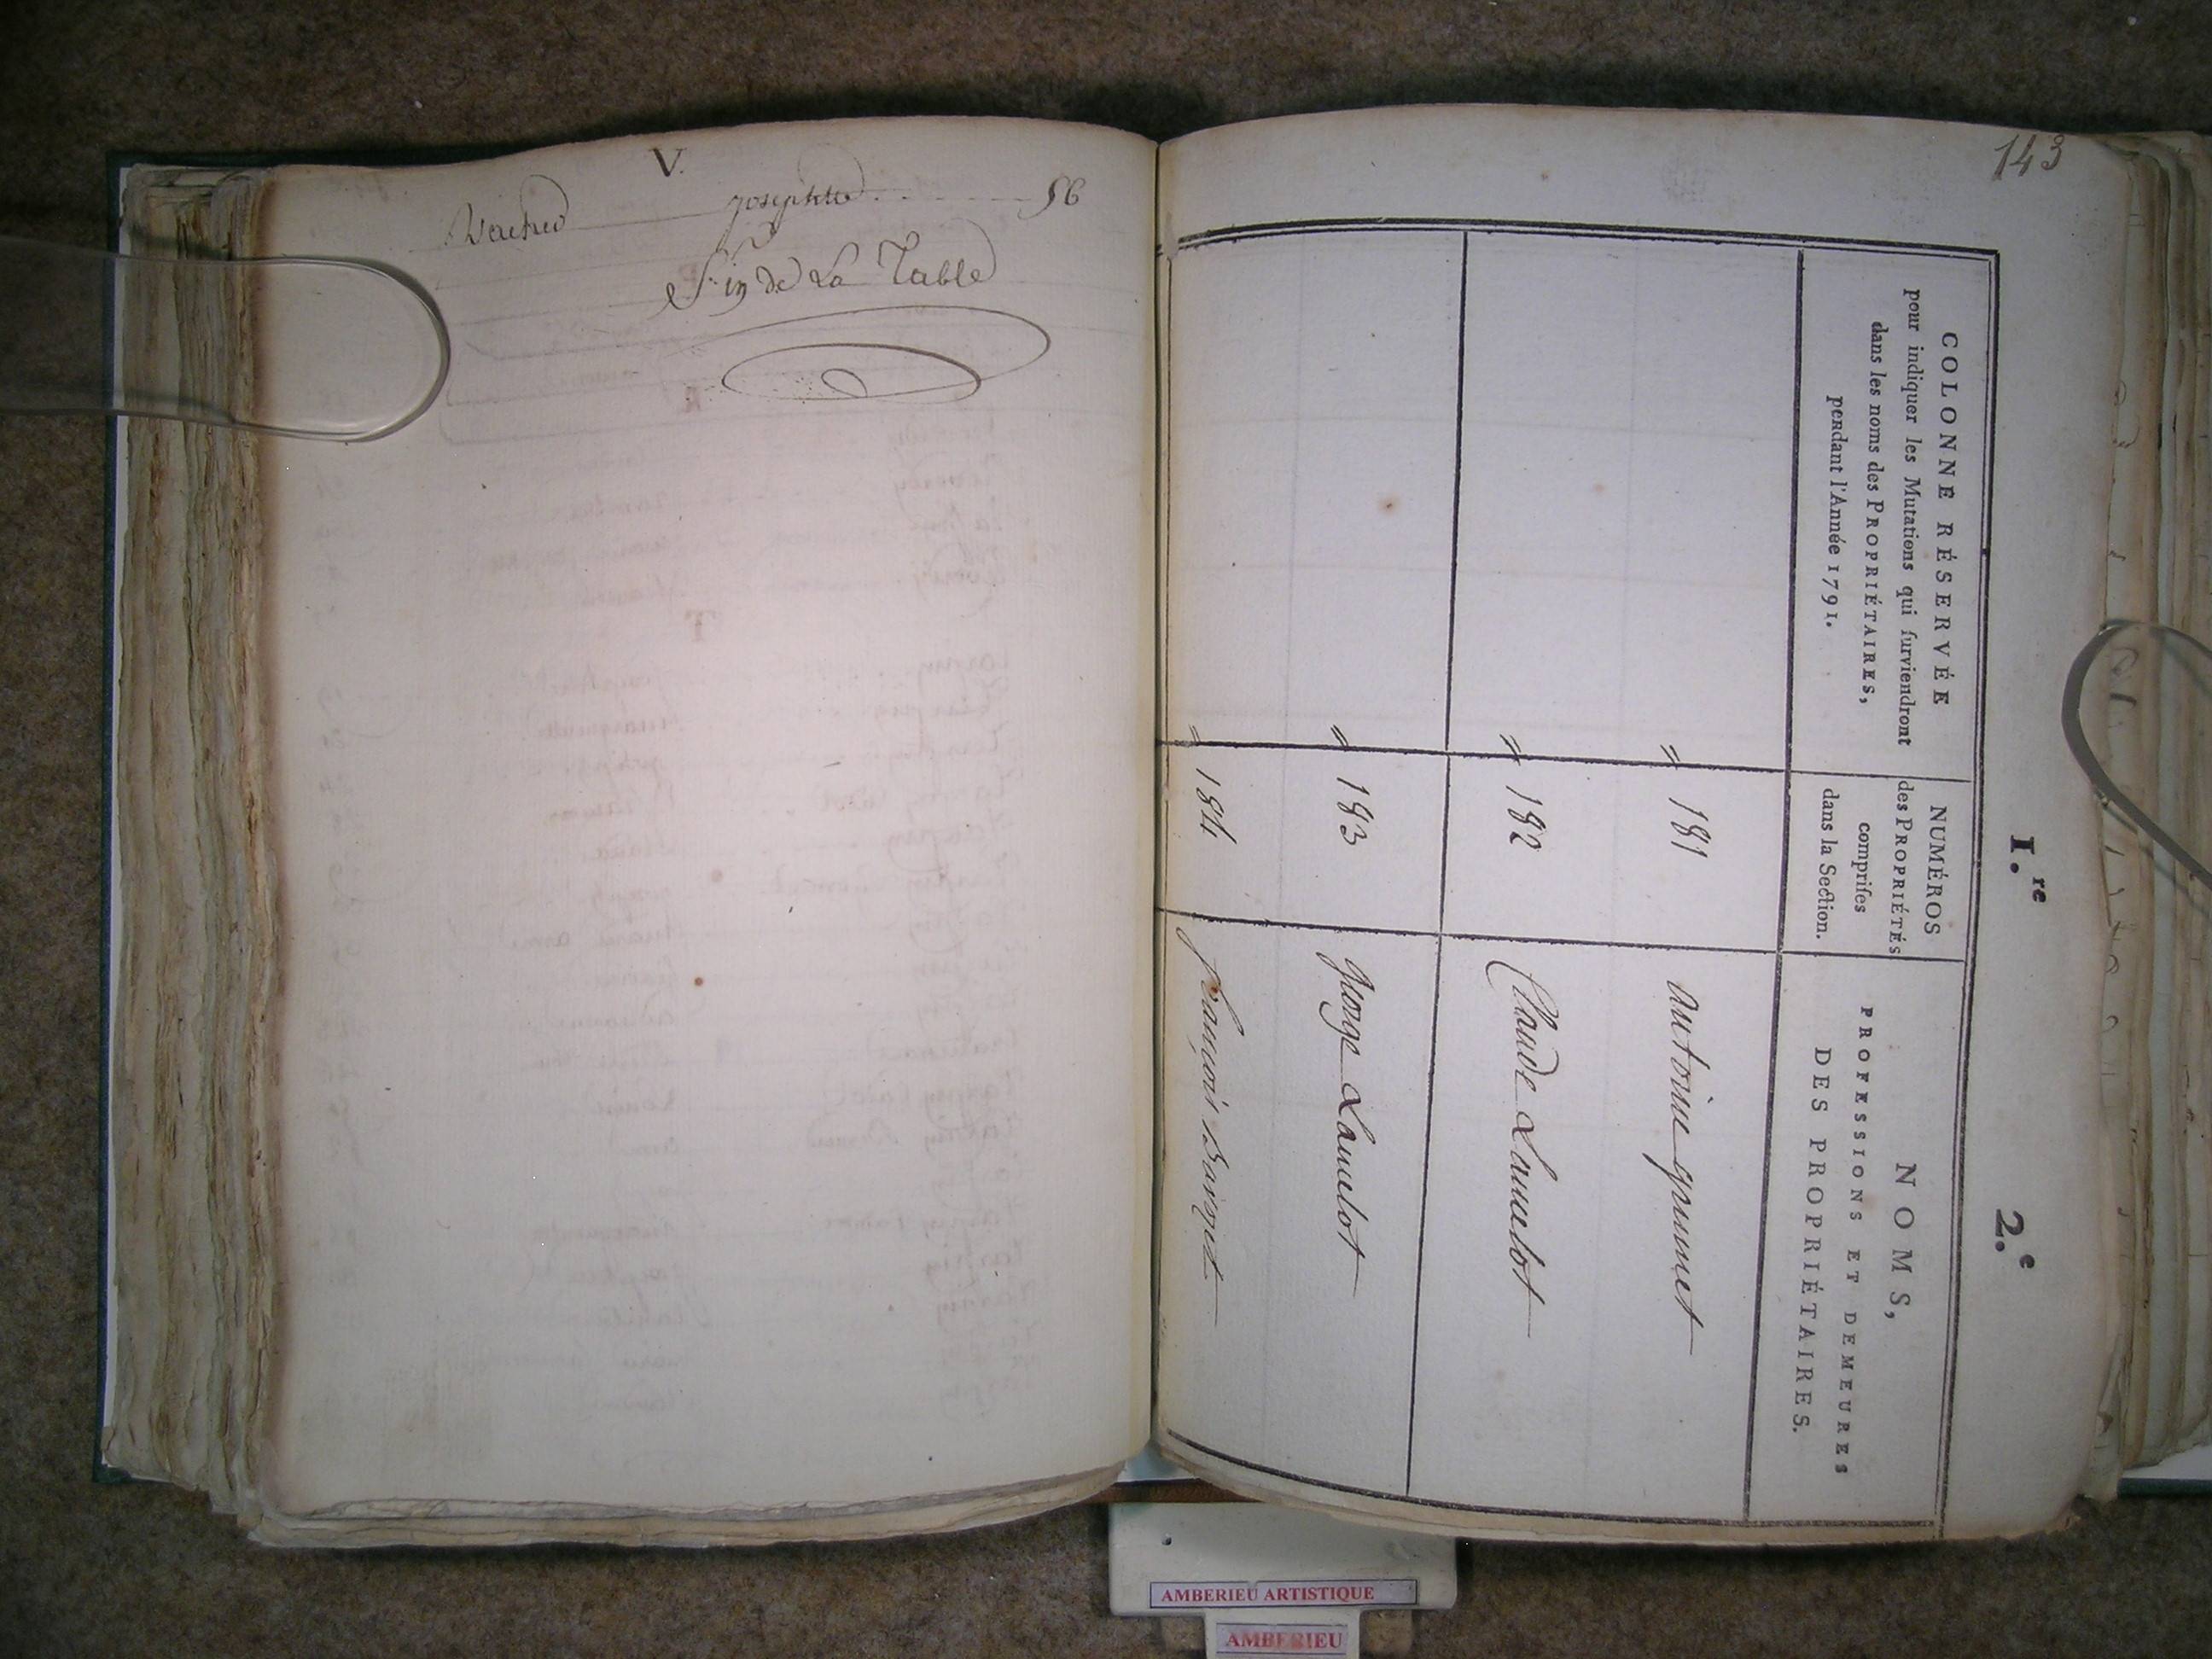 V.
josephte 56
Fin de La Table
143
1.re
2.e
COLONNE RÉSERVÉE
pour indiquer les Mutations qui surviendront
dans les noms des PROPRIÉTAIRES,
pendant l'Année 1791.
NUMÉROS
des PROPRIÉTÉS
comprises
dans la Section.
NOMS,
PROFESSIONS ET DEMEURES
DES PROPRIÉTAIRES.
" 181 antoine grumet
" 182 Claude Lancelot
" 183 george Lancelot
" 184 francois
AMBERIEU ARTISTIQUE
AMBERIEU